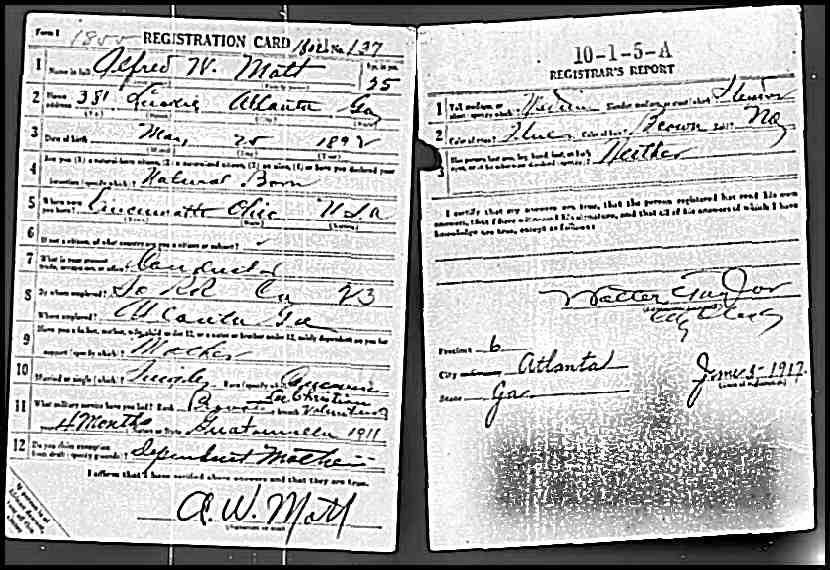 Form 1 1800 REGISTRATION CARD No. 137
1 Name in full Alfred W. Matt Age, in yrs. 25
2 Home address 381 Luckie Atlanta Ga
3 Date of birth May 25 1892
4 Are you (1) a natural-born citizen, (2) a naturalized citizen, (3) an alien, (4) or have you declared your
intention (specify which)? Natural Born
5 Where were you born? Cincinnatti Ohio USA
6 If not a citizen, of what country are you a citizen or subject?
7 What is your present trade, occupation, or office? Conductor
8 By whom employed? So RR Co
Where employed? Atlanta Ga
9 Have you a father, mother, wife, child under 12, or a sister or brother under 12, solely dependent on you for
support (specify which)? Mother
10 Married or single (which)? Single Race (specify which)? Caucasian
11 What military service have you had? Rank branch Volunteer
4 Months Nation or State Guatemala 1911
12 Do you claim exemption from draft (specify grounds)? Dependent Mother
I affirm that I have verified above answers and that they are true.
A. W. Matt
(Signature or mark)
10-1-5-A
REGISTRAR'S REPORT
1 Tall, medium, or short (specify which)? Medium Slender, medium, or stout (which)? Slender
2 Color of eyes? Blue Color of hair? Brown Bald? No
3 Has person lost arm, leg, hand, foot, or both eyes, or is he otherwise disabled (specify)? Neither
I certify that my answers are true, that the person registered has read his own
answers, that I have witnessed his signature, and that all of his answers of which I have
knowledge are true, except as follows:
Walter Taylor
City Clerk
Precinct 6
City or County Atlanta
State Ga
June 5-1917
(Date of registration)